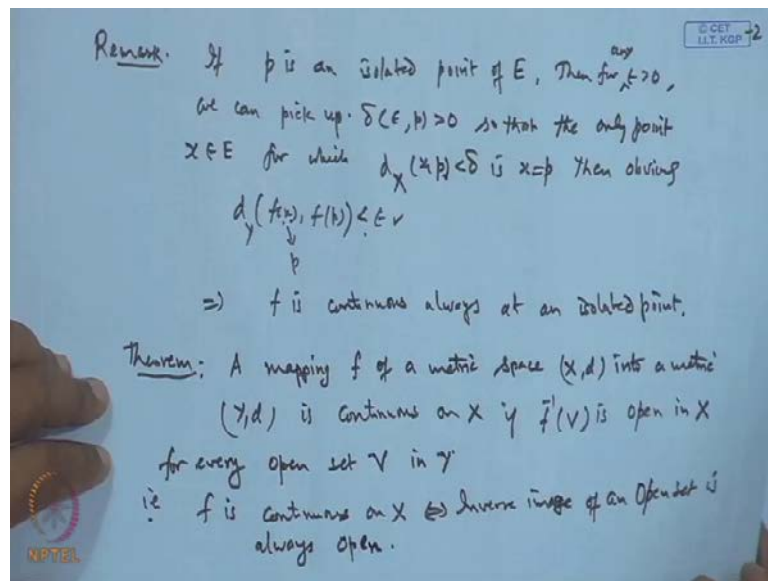 © CET
I.I.T. KGP
-2
Remark. If p is an isolated point of E, Then for any ε>0,
we can pick up. δ(ε,p)>0 so that the only point
x ∈ E for which d_X(x,p)<δ is x=p Then obviously
d_Y(f(x), f(p))<ε ✓
↓
p
⇒ f is continuous always at an isolated point.
Theorem: A mapping f of a metric space (X,d) into a metric
(Y,d) is continuous on X if f⁻¹(V) is open in X
for every open set V in Y
i.e. f is continuous on X ⇔ Inverse image of an Open set is
always open.
NPTEL